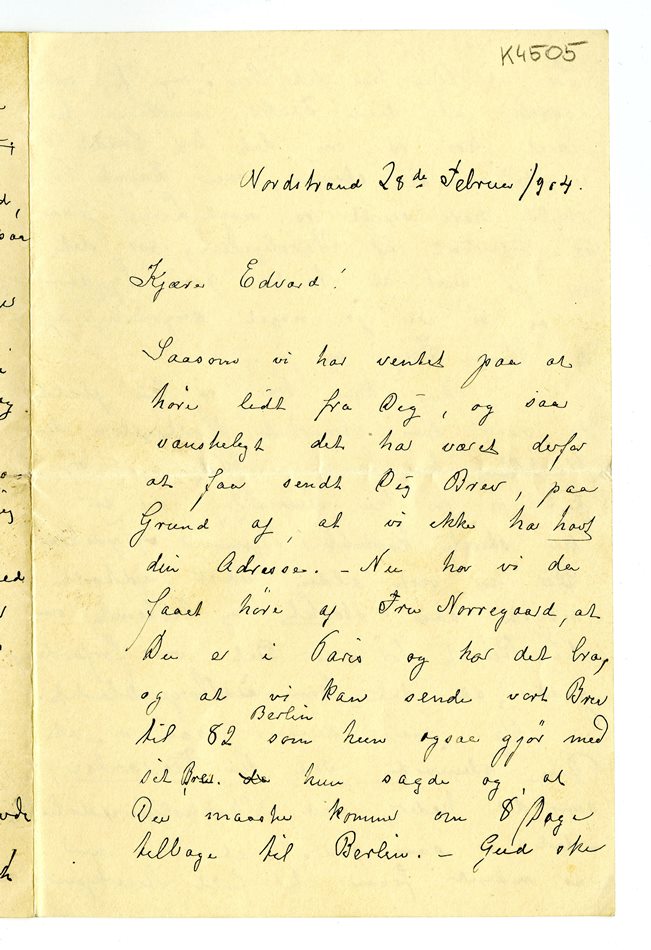 K4505
Nordstrand 28de Februar 1904.
Kjære Edvard!
Saasom vi har ventet paa at
høre lidt fra Dig, og saa
vanskeligt det har været derfor
at faa sendt Dig Brev, paa
Grund af, at vi ikke har havt
din Adresse. – Nu har vi da
faaet høre af Fru Norregaard, at
Du er i Paris og har det bra,
og at vi kan sende vort Brev
til 82 Berlin som hun ogsaa gjør med
sit Brev. da hun sagde og, at
Du maaske kommer om 8 Dage
tilbage til Berlin. – Gud ske
paa